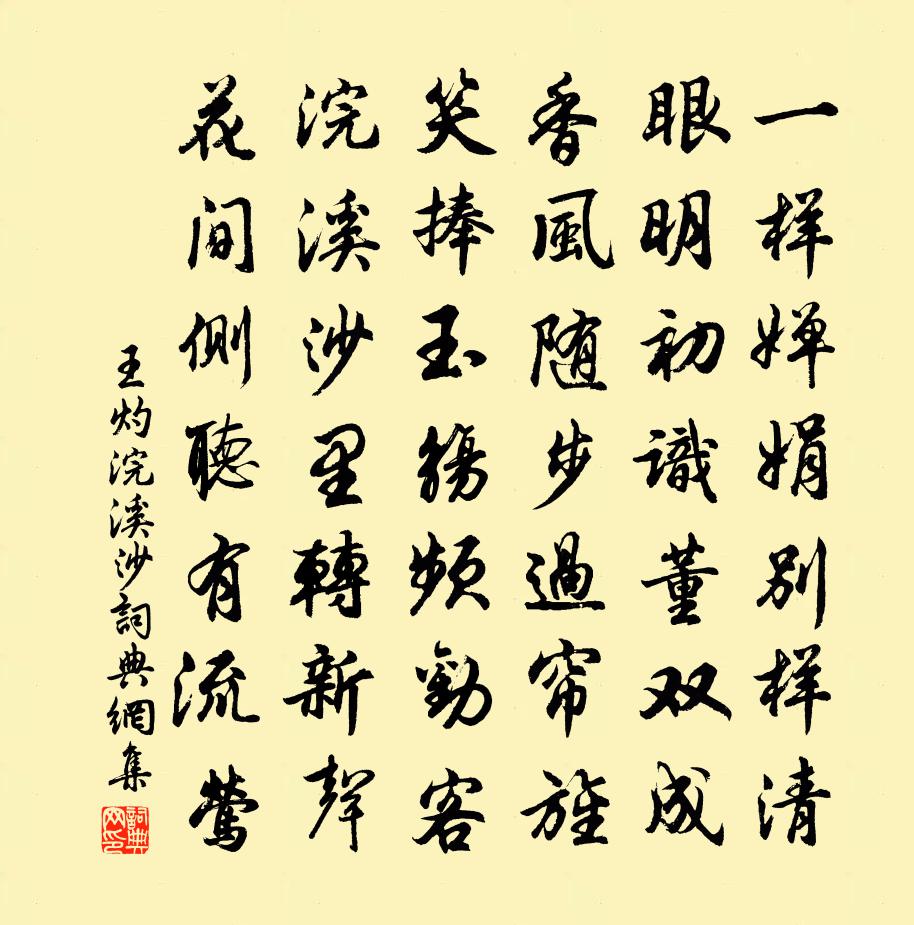 一样婵娟别样清
眼明初識董双成
香風随步過帘旌
笑捧玉觞频勸客
浣溪沙里轉新聲
花间侧聽有流莺
王灼浣溪沙詞典網集
詞典网印